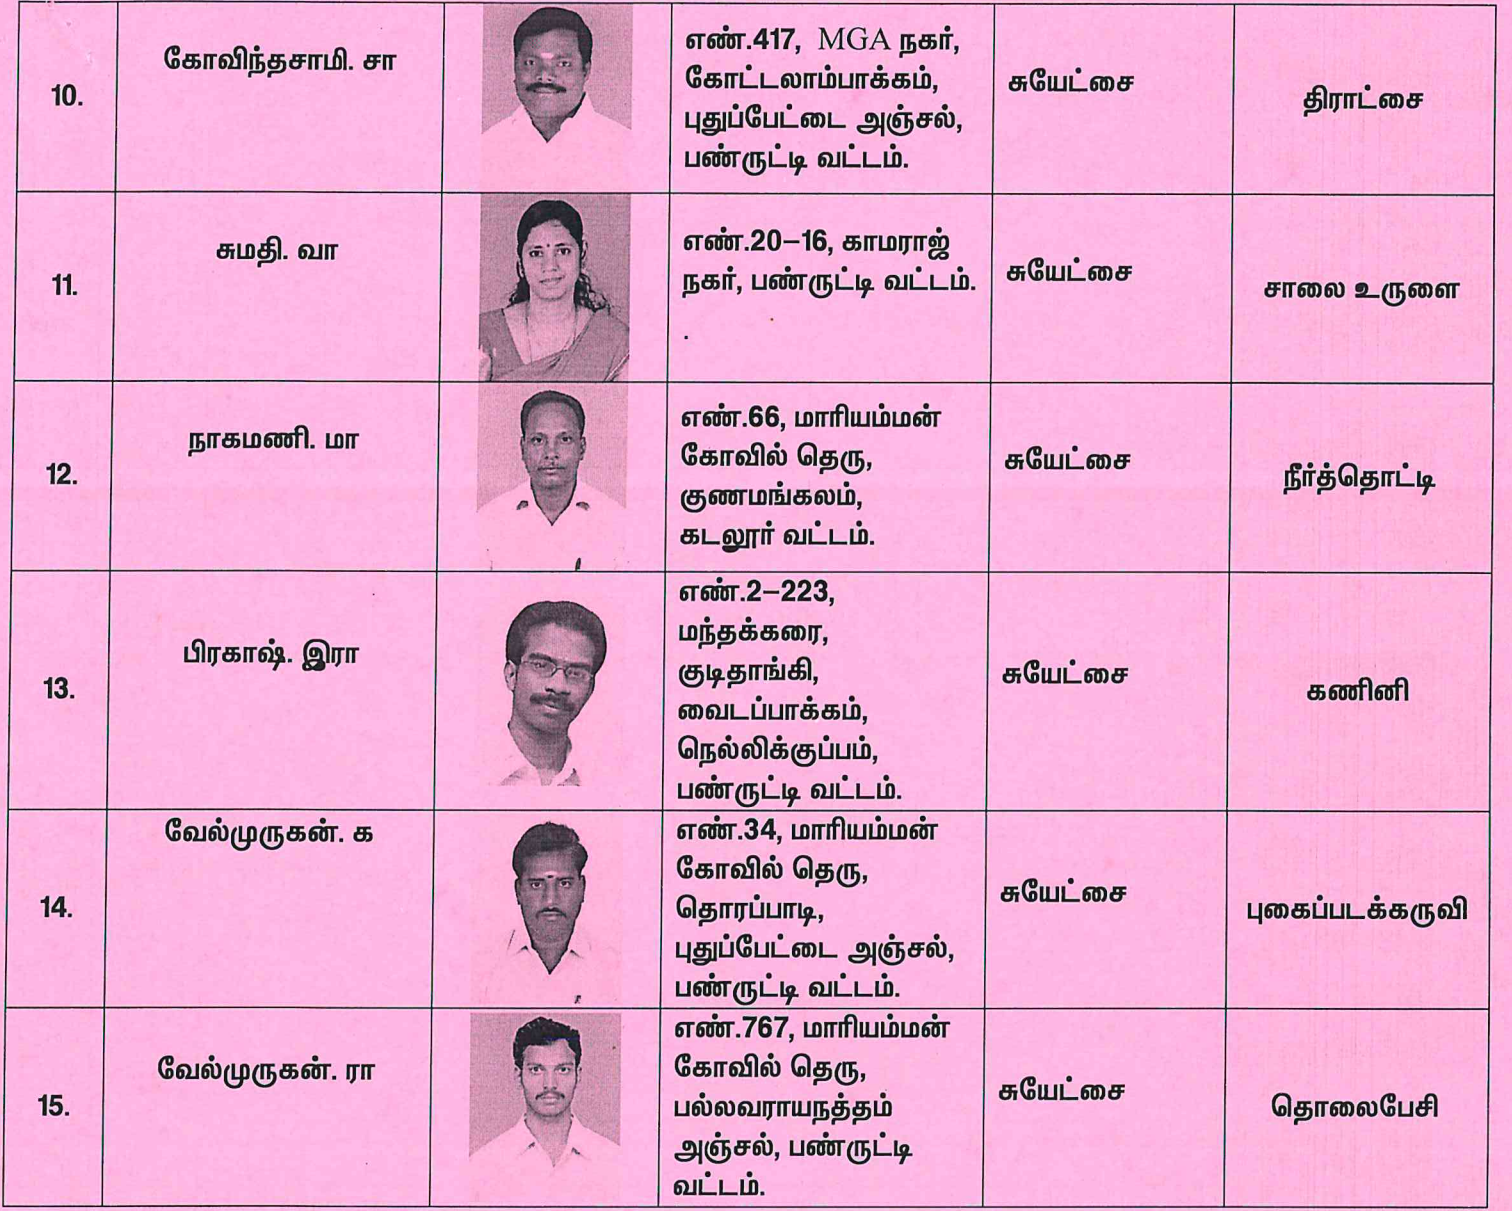 10.
கோவிந்தசாமி. சா
எண்.417, MGA நகர்,
கோட்டலாம்பாக்கம்,
புதுப்பேட்டை அஞ்சல்,
பண்ருட்டி வட்டம்.
சுயேட்சை
திராட்சை
11.
சுமதி. வா
எண்.20–16, காமராஜ்
நகர், பண்ருட்டி வட்டம்.
.
சுயேட்சை
சாலை உருளை
12.
நாகமணி. மா
எண்.66, மாரியம்மன்
கோவில் தெரு,
குணமங்கலம்,
கடலூர் வட்டம்.
சுயேட்சை
நீர்த்தொட்டி
13.
பிரகாஷ். இரா
எண்.2–223,
மந்தக்கரை,
குடிதாங்கி,
வைடப்பாக்கம்,
நெல்லிக்குப்பம்,
பண்ருட்டி வட்டம்.
சுயேட்சை
கணினி
14.
வேல்முருகன். க
எண்.34, மாரியம்மன்
கோவில் தெரு,
தொரப்பாடி,
புதுப்பேட்டை அஞ்சல்,
பண்ருட்டி வட்டம்.
சுயேட்சை
புகைப்படக்கருவி
15.
வேல்முருகன். ரா
எண்.767, மாரியம்மன்
கோவில் தெரு,
பல்லவராயநத்தம்
அஞ்சல், பண்ருட்டி
வட்டம்.
சுயேட்சை
தொலைபேசி